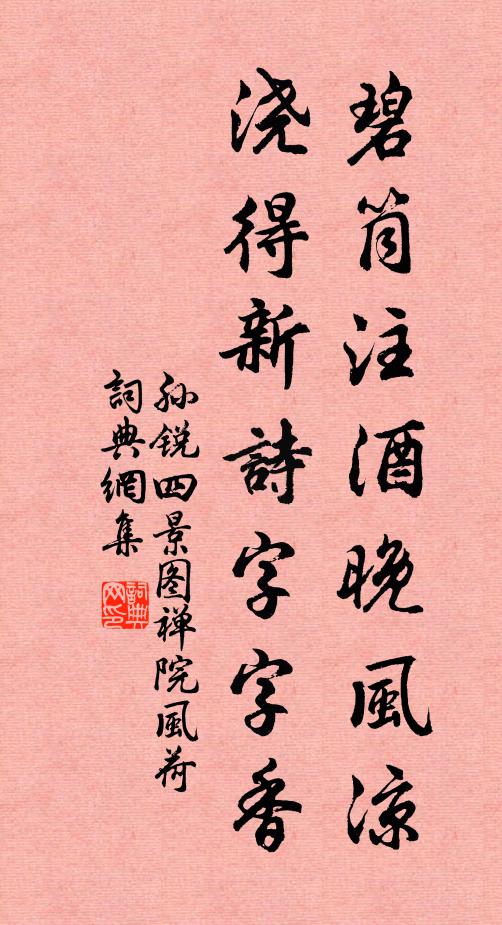 碧筒注酒晚風凉
浇得新詩字字香
孙锐四景图禅院風荷
詞典網集
詞典
网印